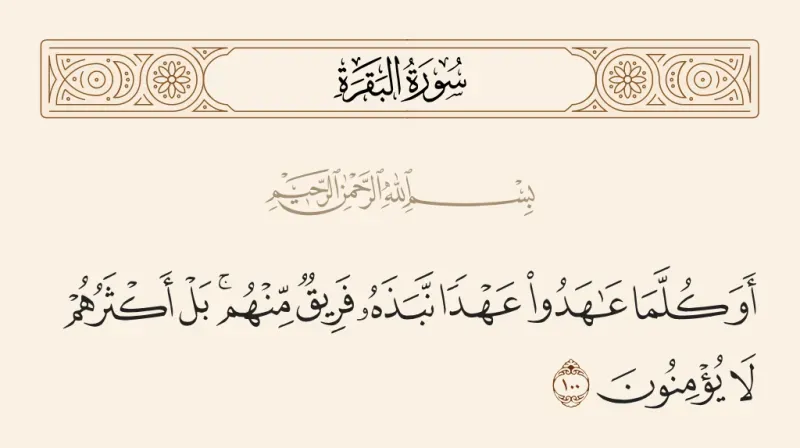 سُورَةُ البَقَرَةِ
بِسْمِ ٱللَّهِ ٱلرَّحْمَٰنِ ٱلرَّحِيمِ
أَوَكُلَّمَا عَـٰهَدُوا۟ عَهْدًا نَّبَذَهُۥ فَرِيقٌ مِّنْهُم ۚ بَلْ أَكْثَرُهُمْ
لَا يُؤْمِنُونَ ١٠٠